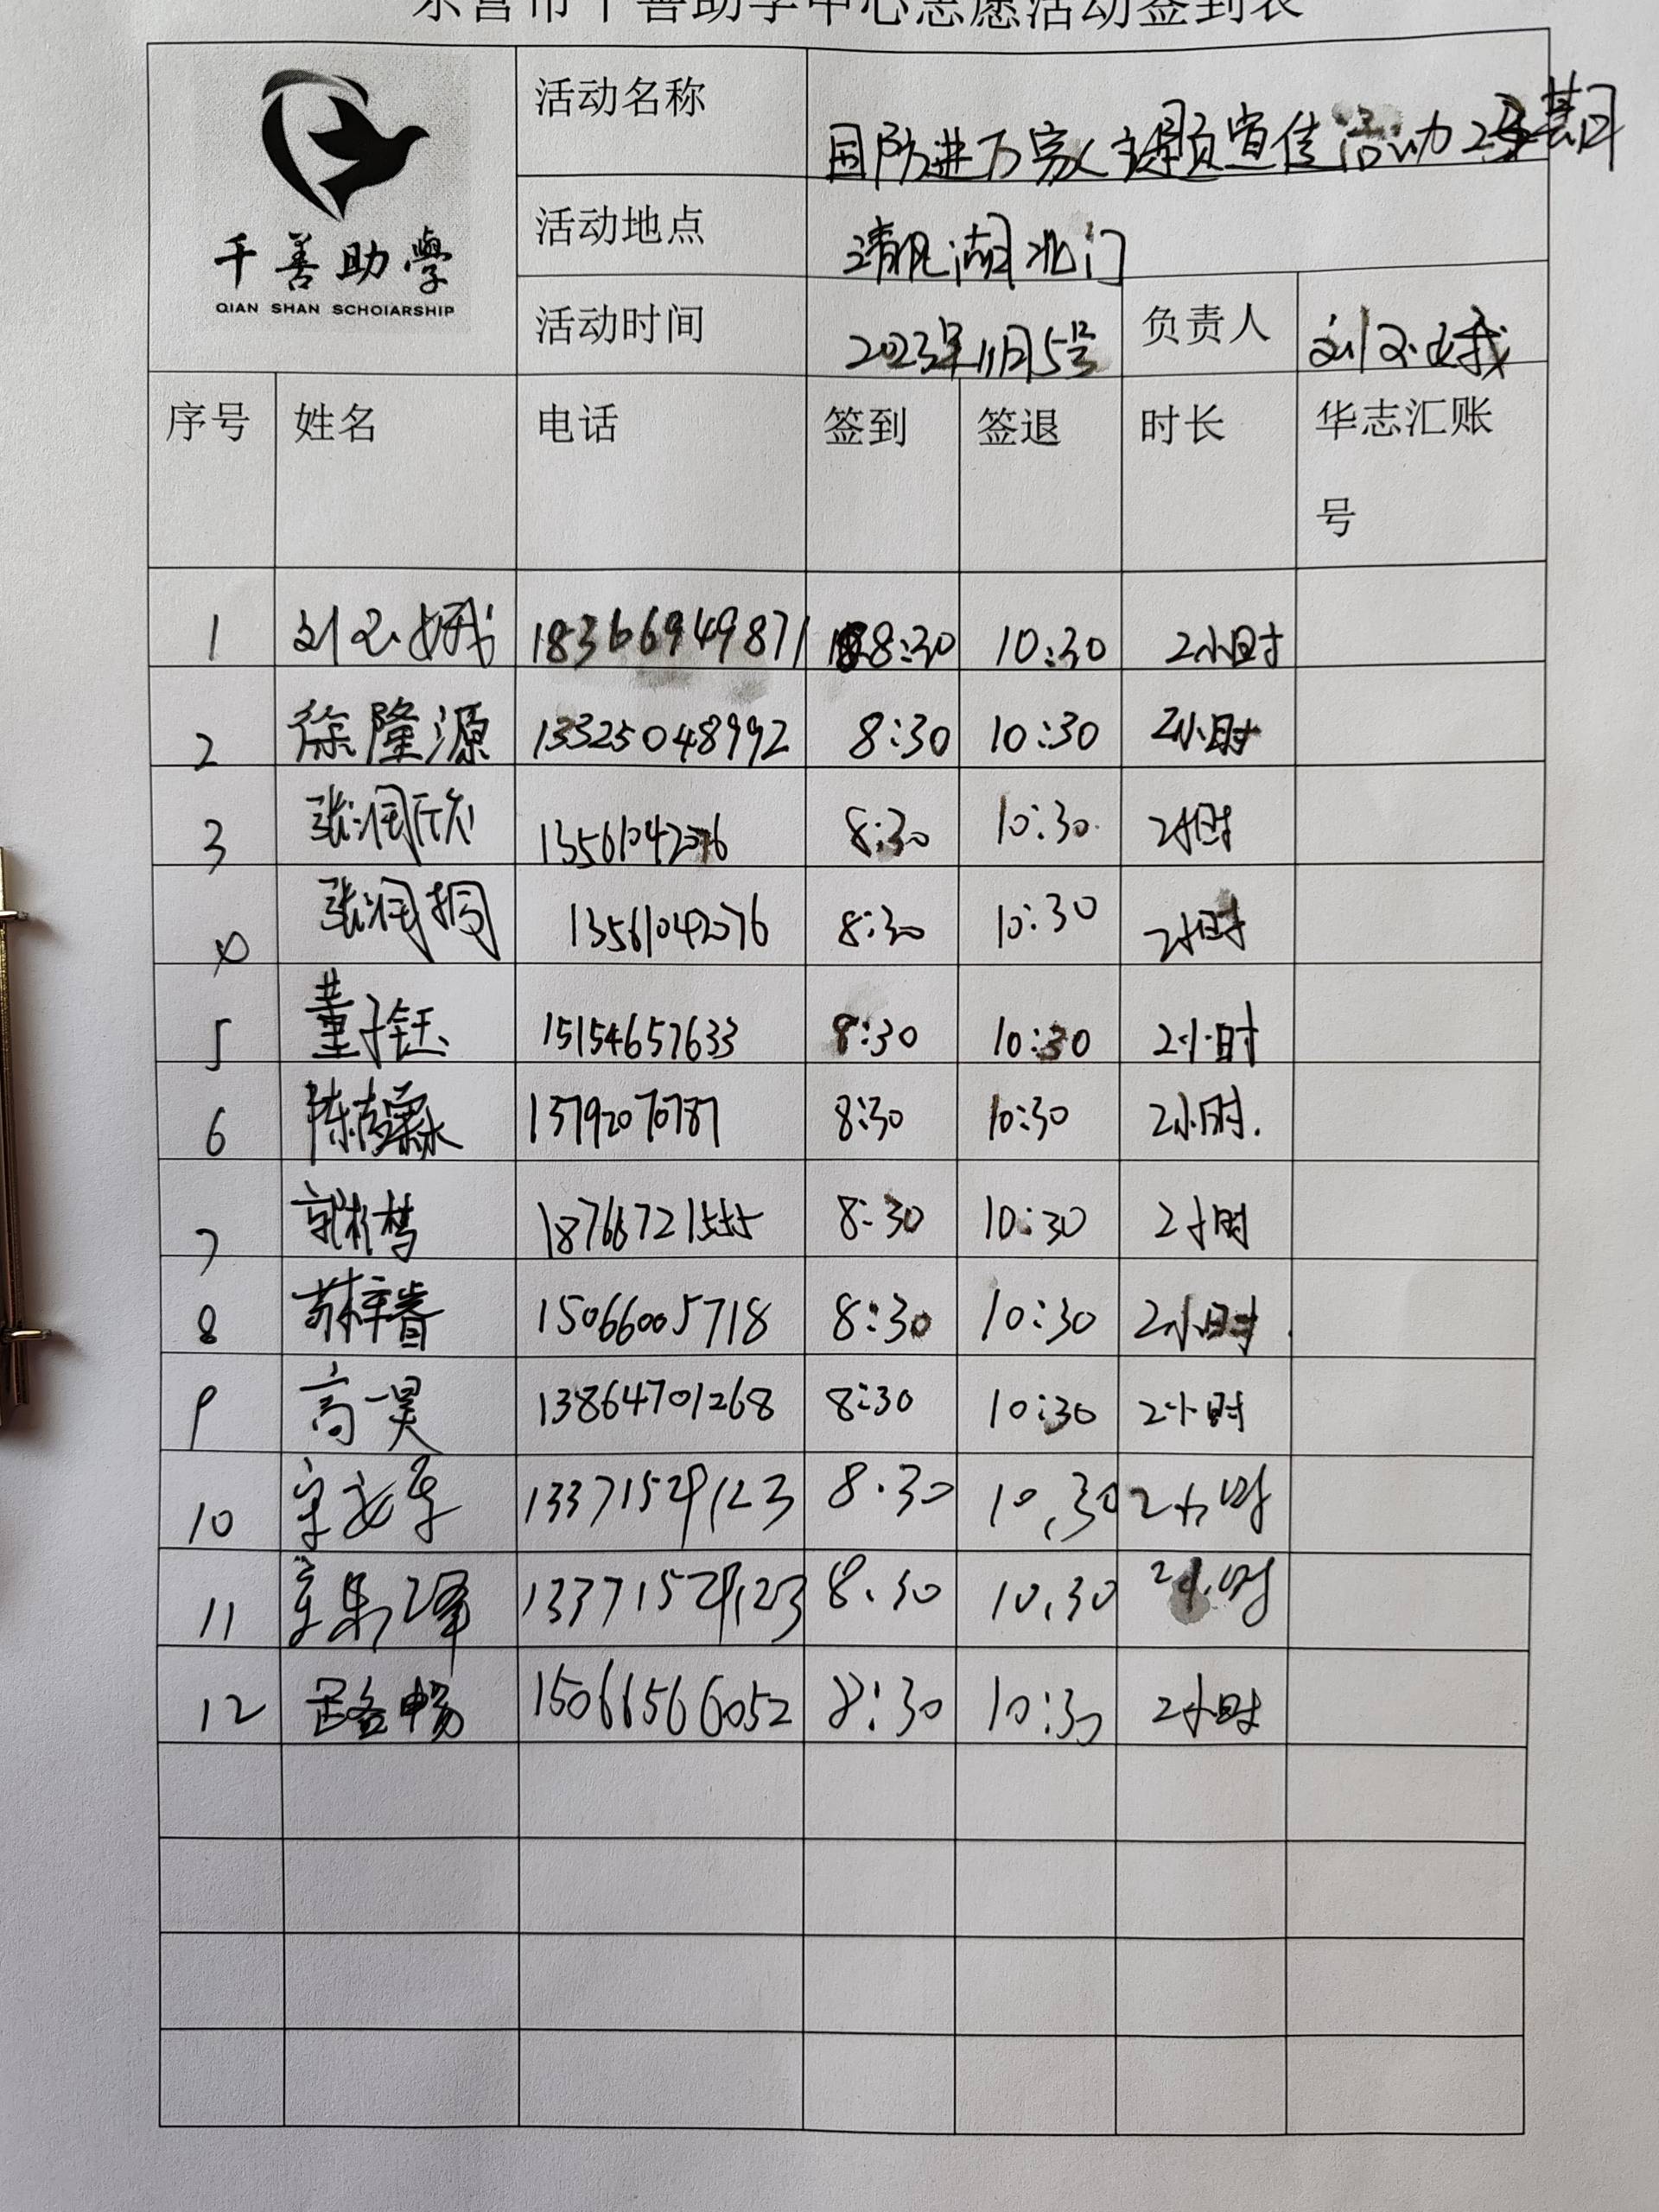 东营市千善助学中心志愿活动签到表
千善助學
QIAN SHAN SCHOIARSHIP
活动名称 国防进万家主题宣传活动2期
活动地点 清风湖北门
活动时间 2023年11月5号 负责人 刘玉娥
序号 姓名 电话 签到 签退 时长 华志汇账
号
1 刘玉娥 18366949871 8:30 10:30 2小时
2 徐隆源 13325048992 8:30 10:30 2小时
3 张润欣 13561042076 8:30 10:30 2小时
4 张润桐 13561042076 8:30 10:30 2小时
5 董子钰 15154657633 8:30 10:30 2小时
6 13792070787 8:30 10:30 2小时.
7 8:30 10:30 2小时
8 苏梓睿 15066005718 8:30 10:30 2小时.
9 高一昊 13864701268 8:30 10:30 2小时
10 13371529123 8.30 10.30 2小时
11 13371529123 8.30 10.30 2小时
12 路畅 15066566052 8:30 10:30 2小时